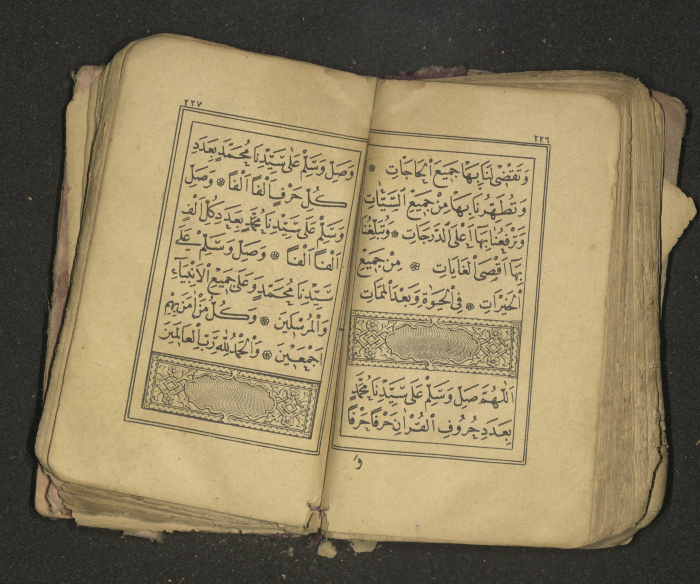 ٢٢٦
وَتَقْضِى لَنَا بِهَا جَمِيعَ الْحَاجَاتِ ۞
وَتُطَهِّرُنَا بِهَا مِنْ جَمِيعِ السَّيِّئَاتِ
وَتَرْفَعُنَا بِهَا اَعْلَى الدَّرَجَاتِ ۞ وَتُبَلِّغُنَا
بِهَا اَقْصَى الْغَايَاتِ ۞ مِنْ جَمِيعِ
الْخَيْرَاتِ ۞ فِى الْحَيٰوةِ وَبَعْدَ الْمَمَاتِ
اَللّٰهُمَّ صَلِّ وَسَلِّمْ عَلٰى سَيِّدِنَا مُحَمَّدٍ
بِعَدَدِ حُرُوفِ الْقُرْاٰنِ حَرْفًا حَرْفًا
و
٢٢٧
وَصَلِّ وَسَلِّمْ عَلٰى سَيِّدِنَا مُحَمَّدٍ بِعَدَدِ
كُلِّ حَرْفٍ اَلْفًا اَلْفًا ۞ وَصَلِّ
وَسَلِّمْ عَلٰى سَيِّدِنَا مُحَمَّدٍ بِعَدَدِ كُلِّ اَلْفٍ
اَلْفًا اَلْفًا ۞ وَصَلِّ وَسَلِّمْ عَلٰى
سَيِّدِنَا مُحَمَّدٍ وَعَلٰى جَمِيعِ الْاَنْبِيَٓاءِ
وَالْمُرْسَلِينَ ۞ وَكُلِّ مَنْ اٰمَنَ بِهِمْ
اَجْمَعِينَ ۞ وَالْحَمْدُ لِلّٰهِ رَبِّ الْعَالَمِينَ